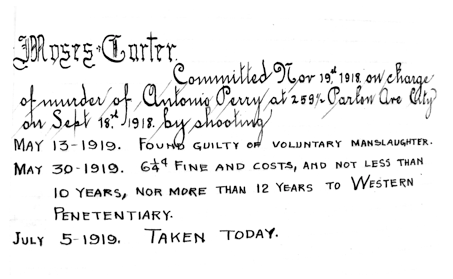 Moses Carter.
Committed Nov 19st 1918. on charge
of murder of Antonio Perry at 259½ Parlon Ave City
on Sept 18st 1918. by shooting
May 13-1919. Found guilty of voluntary manslaughter.
May 30-1919. 6¼¢ fine and costs, and not less than
10 years, nor more than 12 years to Western
Penetentiary.
July 5-1919. Taken today.